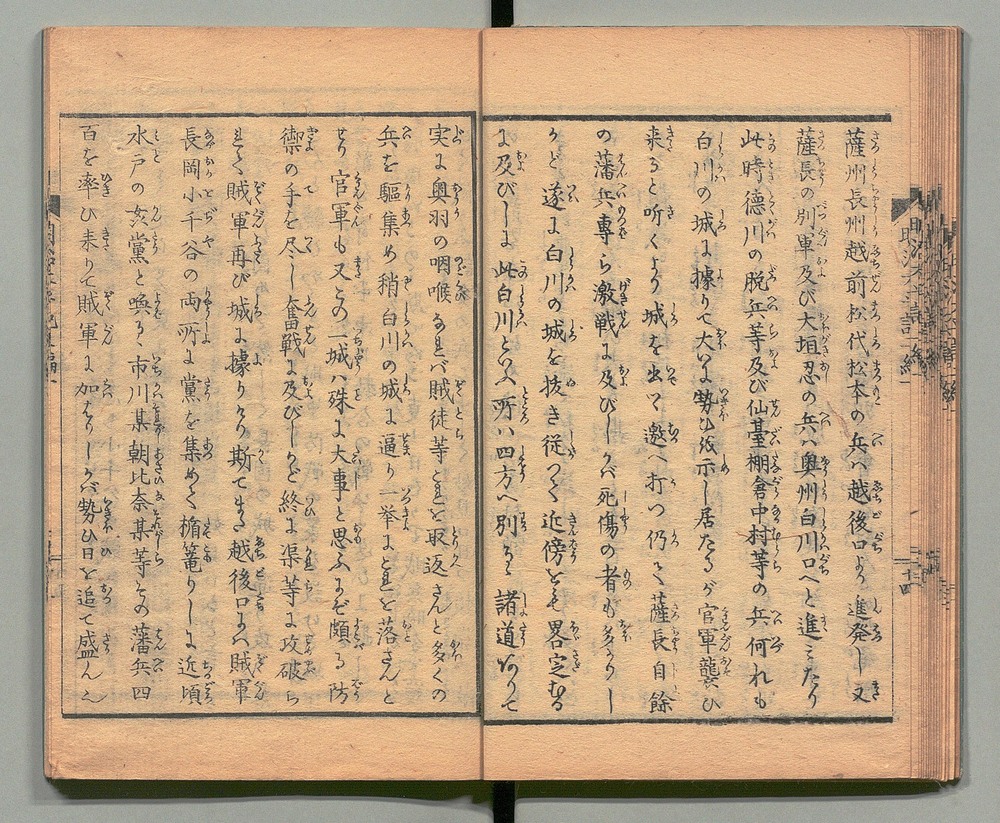 薩州長州越前松代松本の兵ハ越後口より進発し又
薩長の別軍及び大垣忍の兵ハ奥州白川口へと進ミたり
此時徳川の脱兵等及び仙臺棚倉中村等の兵何れも
白川の城に據りて大いに勢ひ張示し居たるが官軍襲ひ
来ると听くより城を出いで邀へ打つ仍て薩長自餘
の藩兵專ら激戦に及びしかバ死傷の者も多かりし
かど遂に白川の城を抜き従つて近傍をも畧定なる
に及びしに此白川といへる所ハ四方へ別るゝ諸道ありて
実に奥羽の咽喉なれバ賊徒等これを取返さんと多くの
兵を驅集め稍白川の城に逼り一挙にこれを落さんと
せり官軍も又この一城ハ殊に大事と思ふにぞ頗る防
禦の手を尽し奮戦に及びしかど終に渠等に攻破ら
れて賊軍再び城に據りけり斯てまた越後口にハ賊軍
長岡小千谷の両所に黨を集めて楯篭りしに近頃
水戸の姦黨と喚るゝ市川某朝比奈某等その藩兵四
百を率ひ来りて賊軍に加はりしかバ勢ひ日を追て盛んに